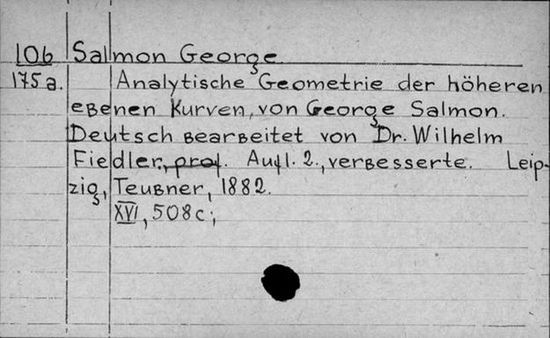 106 Salmon George
175a. Analytische Geometrie der höheren
ebenen Kurven, von George Salmon.
Deutsch bearbeitet von Dr. Wilhelm
Fiedler, prof. Aufl. 2., verbesserte. Leip-
zig, Teubner, 1882.
XVI, 508 c;